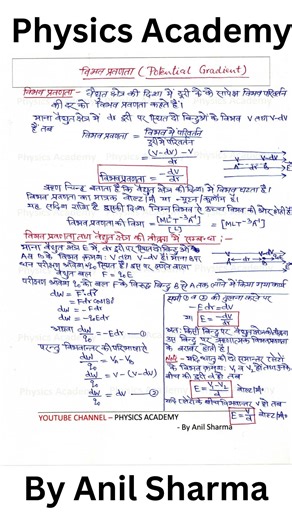 Physics Academy
विभव प्रवणता (Potential Gradient)
विभव प्रवणता - वैद्युत क्षेत्र की दिशा में दूरी के सापेक्ष विभव परिवर्तन
की दर को विभव प्रवणता कहते हैं।
माना वैद्युत क्षेत्र में dr दूरी पर स्थित दो बिन्दुओं के विभव V तथा V-dV
हैं तब
विभव प्रवणता = विभव में परिवर्तन / दूरी में परिवर्तन
= (V-dV) - V / dr
विभव प्रवणता = -dV / dr
ऋण चिन्ह बताता है कि वैद्युत क्षेत्र की दिशा में विभव घटता है।
विभव प्रवणता का मात्रक वोल्ट/मी या न्यूटन/कूलॉम है।
यह सदिश राशि है इसकी दिशा निम्न विभव से उच्च विभव की ओर होती है।
विभव प्रवणता की विमा = [ML²T⁻³A⁻¹] / [L] = [MLT⁻³A⁻¹]
विभव प्रवणता तथा वैद्युत क्षेत्र की तीव्रता में सम्बन्ध :-
माना वैद्युत क्षेत्र E में dr दूरी पर स्थित दो बिन्दुओं
A व B के विभव क्रमशः V तथा V-dV हैं। माना
धन परीक्षण आवेश q₀ स्थित है। इस पर लगने वाला
वैद्युत बल F = q₀E
परीक्षण आवेश q₀ को बल F के विरुद्ध बिन्दु B से A तक लाने में किया गया कार्य
dW = F.dr
dW = Fdr cos180
dW = -Fdr
dW = -q₀Edr
अथवा dW / q₀ = -Edr — ①
परन्तु विभवान्तर की परिभाषा से
dW / q₀ = VA - VB
dW / q₀ = V - (V-dV)
dW / q₀ = dV — ②
समी ① व ② की तुलना करने पर
-Edr = dV
या E = -dV / dr
अतः किसी बिन्दु पर वैद्युत क्षेत्र की तीव्रता
उस बिन्दु पर ऋणात्मक विभव प्रवणता
के बराबर होती है।
Note -
बीच की दूरी d हो तब
E = V₁-V₂ / d वोल्ट/मी०
यदि प्लेटों के बीच विभवान्तर V हो तब
E = V / d वोल्ट/मी०
YOUTUBE CHANNEL – PHYSICS ACADEMY
- By Anil Sharma
By Anil Sharma